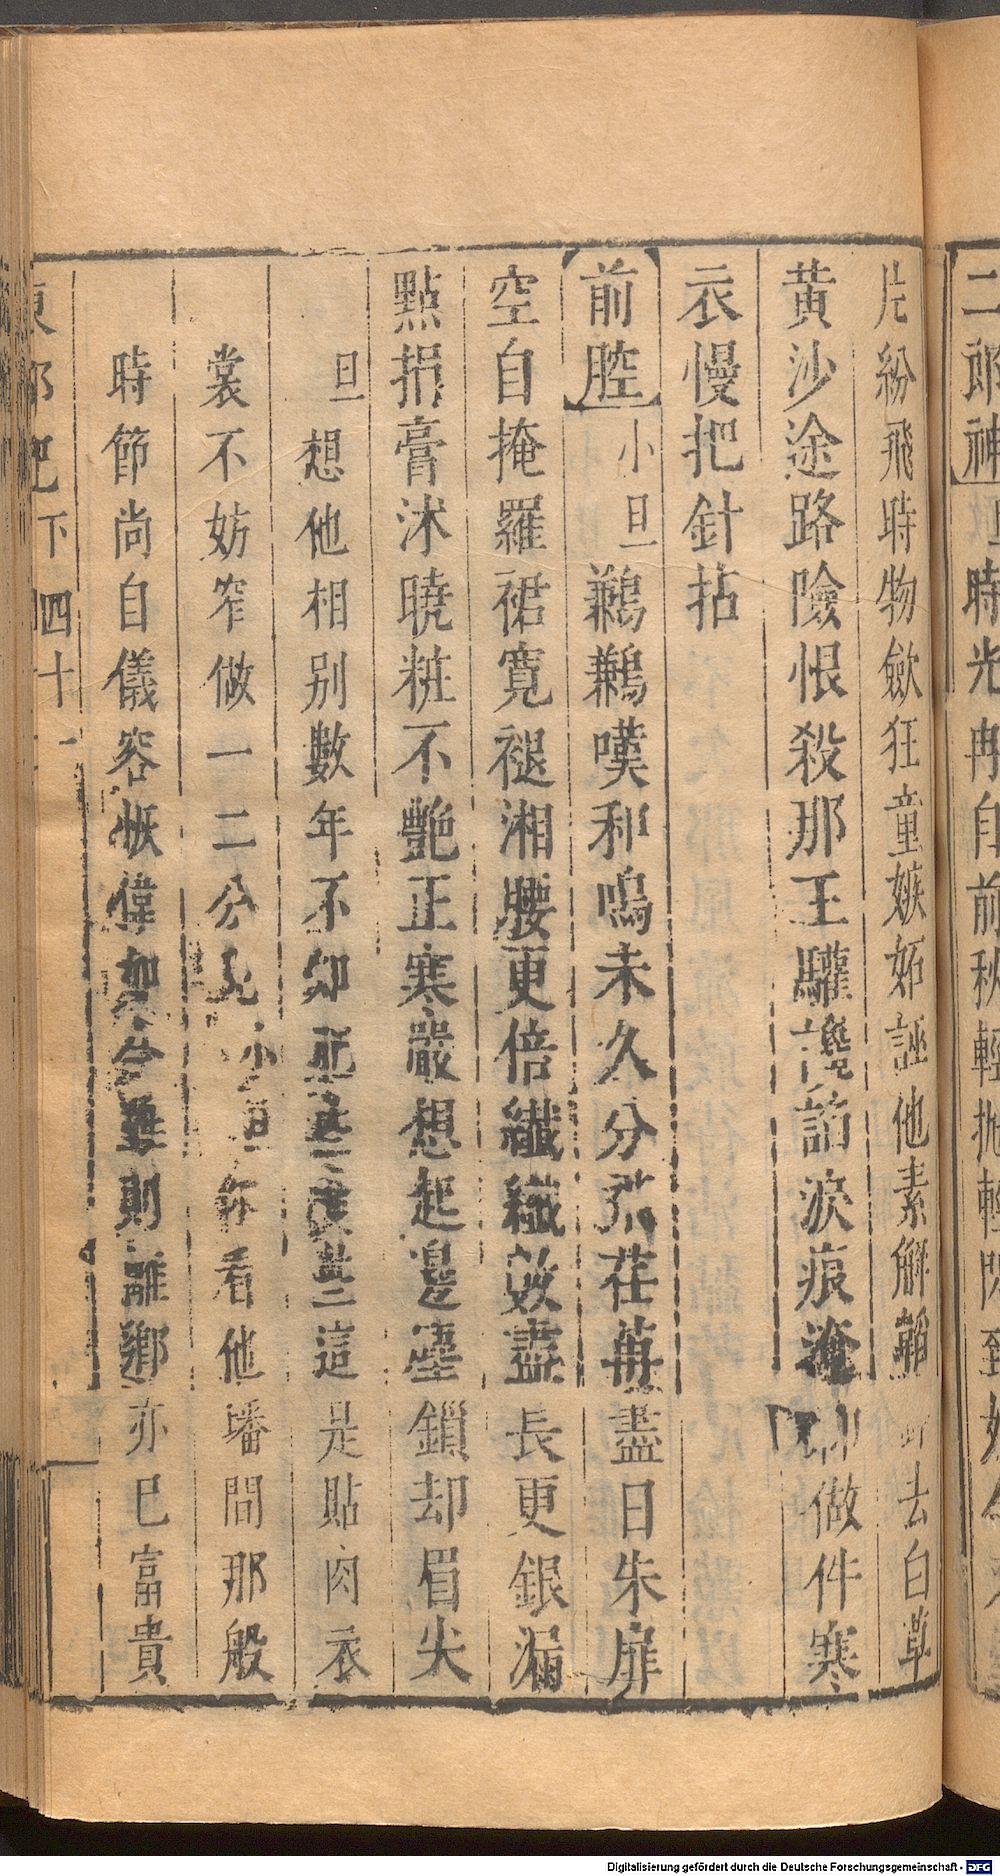 二郎神 時光冉自前秋輕抛輕閃到如今
片紛飛時物歛狂童嫉妬誣他素解韜 去白草
黃沙途路險恨殺那王驩讒謟淚痕淹 做件寒
衣慢把針拈
前腔 小旦鶼鶼嘆和鳴未久分荒荏苒盡日朱扉
空自掩羅裙寬褪湘腰更倍纖纖數盡長更銀漏
點捐膏沐曉粧不艷正寒嚴想起邊塵鎖却眉尖
旦想他相別數年不知 這是貼肉衣
裳不妨窄做一二分兒小旦你看他墦間那般
時節尚自儀容恢偉如今雖則離鄉亦巳富貴
東郭記下 四十一
Digitalisierung gefördert durch die Deutsche Forschungsgemeinschaft - DFG